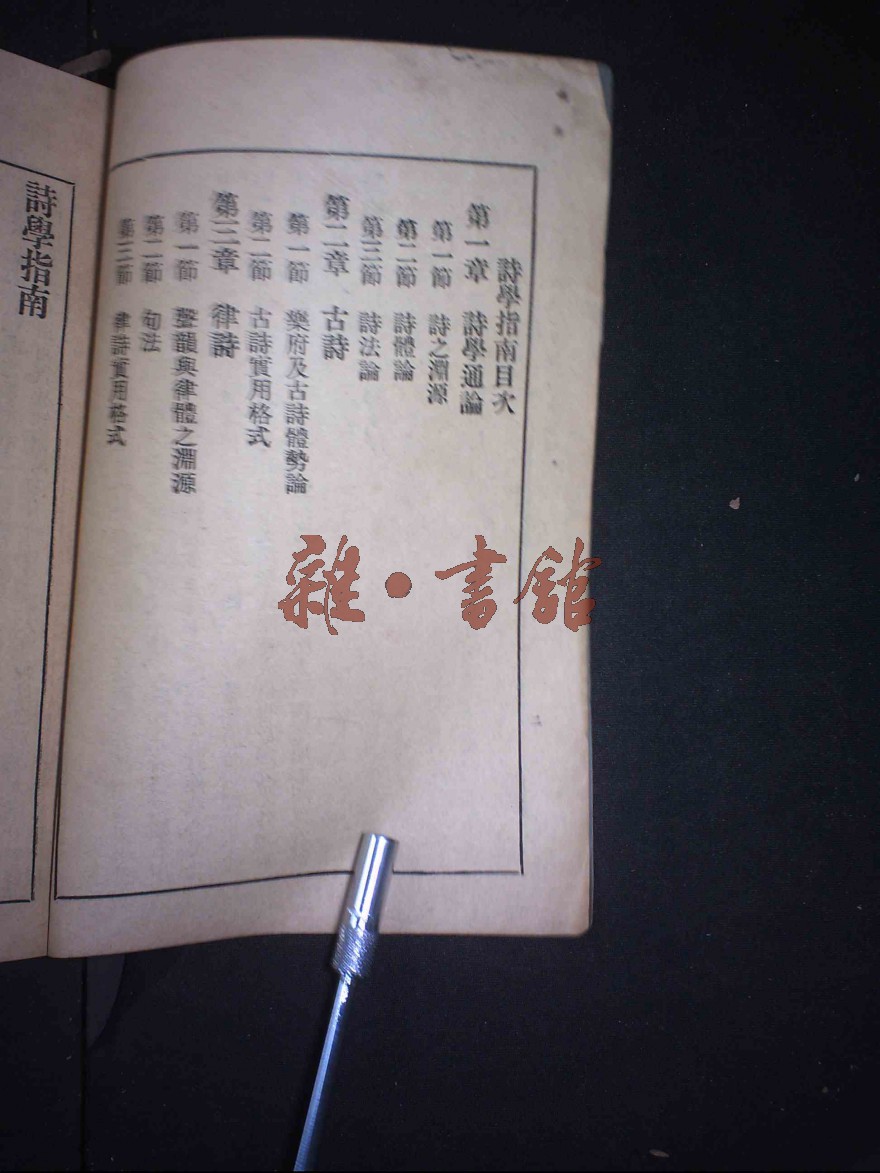 詩學指南目次
第一章 詩學通論
第一節 詩之淵源
第二節 詩體論
第三節 詩法論
第二章 古詩
第一節 樂府及古詩體勢論
第二節 古詩實用格式
第三章 律詩
第一節 聲韻與律體之淵源
第二節 句法
第三節 律詩實用格式
詩學指南
雜·書館